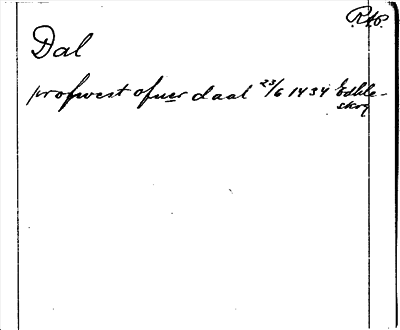 RAP.
Dal
profwest ofuer daal 23/6 1434 Edhle-
skog